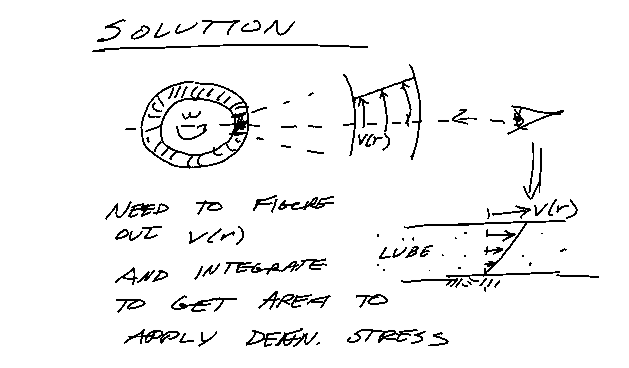 SOLUTION
ω
V(r)
V(r)
LUBE
NEED TO FIGURE
OUT V(r)
AND INTEGRATE
TO GET AREA TO
APPLY DEFN. STRESS